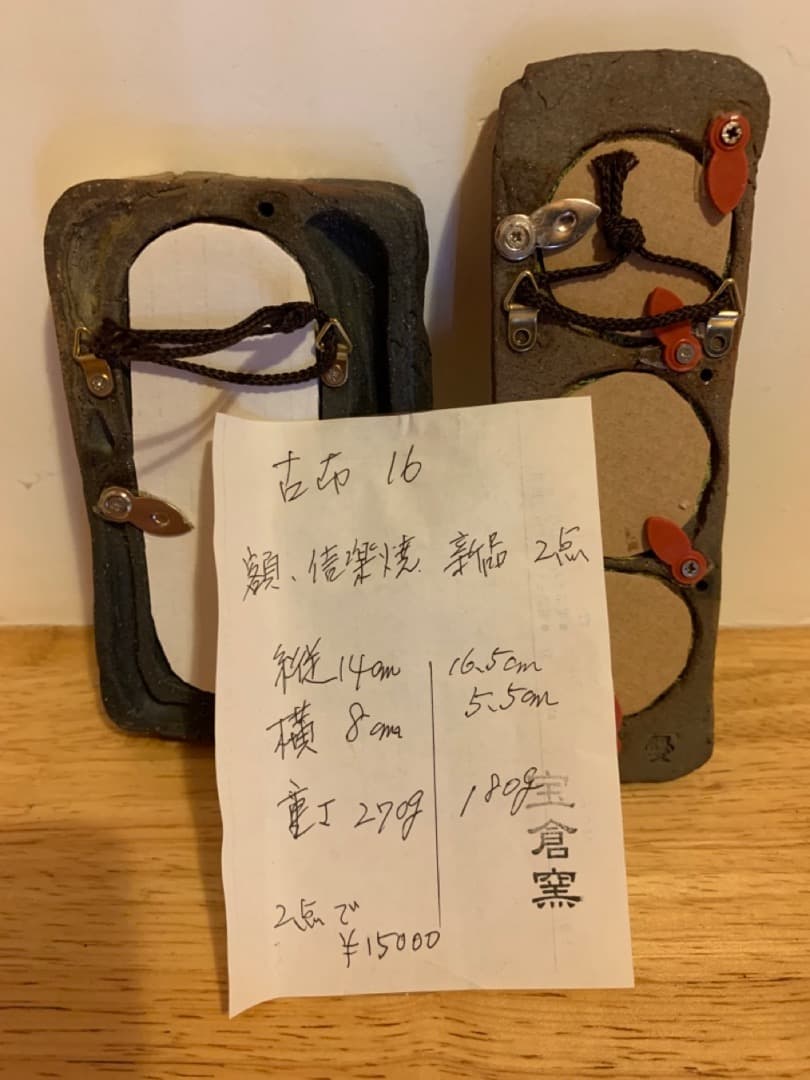 古布 16
額、信楽焼 新品 2点
縦 14cm 16.5cm
横 8cm 5.5cm
重サ 270g 180g
2点で
¥15000
宝倉窯